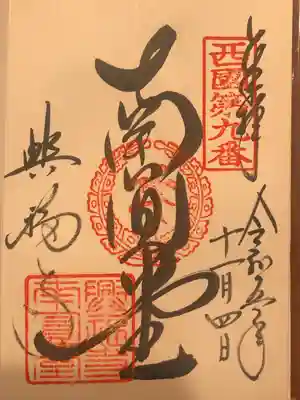 西國第九番
令和五年
十一月四日
南圓堂
興福寺
興福寺
南圓堂